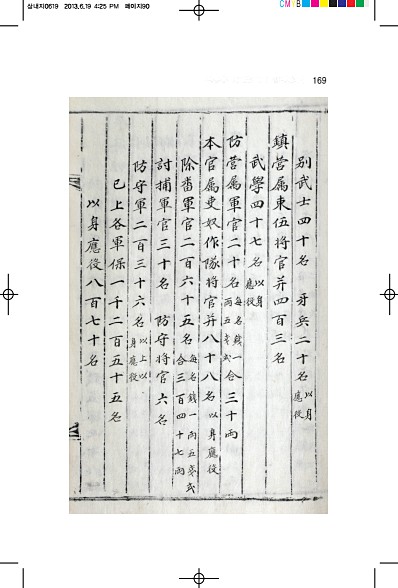 삼내지0619 2013.6.19 4:25 PM 페이지90
CMYB
169
別武士四十名 牙兵二十名以身應役
鎭營属束伍將官并四百三名
武學四十七名以身應役
防營属軍官二十名每名錢一兩五戔式合三十兩
本官属吏奴作隊將官并八十八名以身應役
除畨軍官二百六十五名每名錢一兩五戔式合三百四十七兩
討捕軍官三十名 防守將官六名
防守軍二百三十六名以上以身應役
已上各軍保一千二百五十五名
以身應役八百七十名